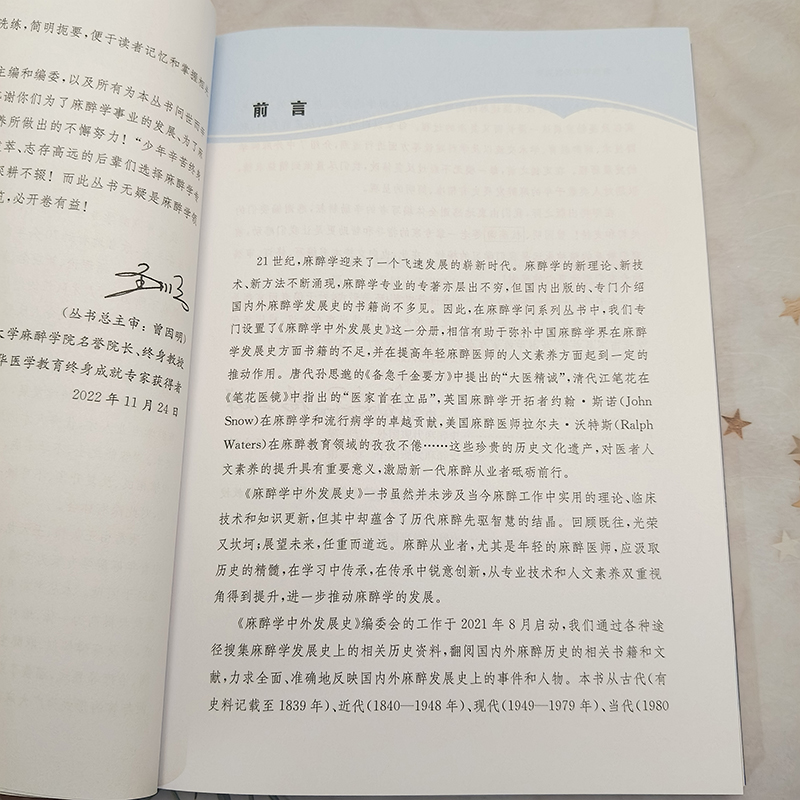 洗练，简明扼要，便于读者记忆和掌握
主编和编委，以及所有为本丛书问世
谢你们为了麻醉学事业的发展、为了
养所做出的不懈努力！“少年辛苦终身
萃、志存高远的后辈们选择麻醉学专
深耕不辍！而此丛书无疑是麻醉学领
，必开卷有益！
（丛书总主审：曾因明）
大学麻醉学院名誉院长、终身教授
华医学教育终身成就专家获得者
2022年11月24日
前 言
21世纪，麻醉学迎来了一个飞速发展的崭新时代。麻醉学的新理论、新技
术、新方法不断涌现，麻醉学专业的专著亦层出不穷，但国内出版的、专门介绍
国内外麻醉学发展史的书籍尚不多见。因此，在麻醉学问系列丛书中，我们专
门设置了《麻醉学中外发展史》这一分册，相信有助于弥补中国麻醉学界在麻醉
学发展史方面书籍的不足，并在提高年轻麻醉医师的人文素养方面起到一定的
推动作用。唐代孙思邈的《备急千金要方》中提出的“大医精诚”，清代江笔花在
《笔花医镜》中指出的“医家首在立品”，英国麻醉学开拓者约翰·斯诺(John
Snow)在麻醉学和流行病学的卓越贡献，美国麻醉医师拉尔夫·沃特斯(Ralph
Waters)在麻醉教育领域的孜孜不倦……这些珍贵的历史文化遗产，对医者人
文素养的提升具有重要意义，激励新一代麻醉从业者砥砺前行。
《麻醉学中外发展史》一书虽然并未涉及当今麻醉工作中实用的理论、临床
技术和知识更新，但其中却蕴含了历代麻醉先驱智慧的结晶。回顾既往，光荣
又坎坷；展望未来，任重而道远。麻醉从业者，尤其是年轻的麻醉医师，应汲取
历史的精髓，在学习中传承，在传承中锐意创新，从专业技术和人文素养双重视
角得到提升，进一步推动麻醉学的发展。
《麻醉学中外发展史》编委会的工作于2021年8月启动，我们通过各种途
径搜集麻醉学发展史上的相关历史资料，翻阅国内外麻醉历史的相关书籍和文
献，力求全面、准确地反映国内外麻醉发展史上的事件和人物。本书从古代(有
史料记载至1839年)、近代(1840—1948年)、现代(1949—1979年)、当代(1980